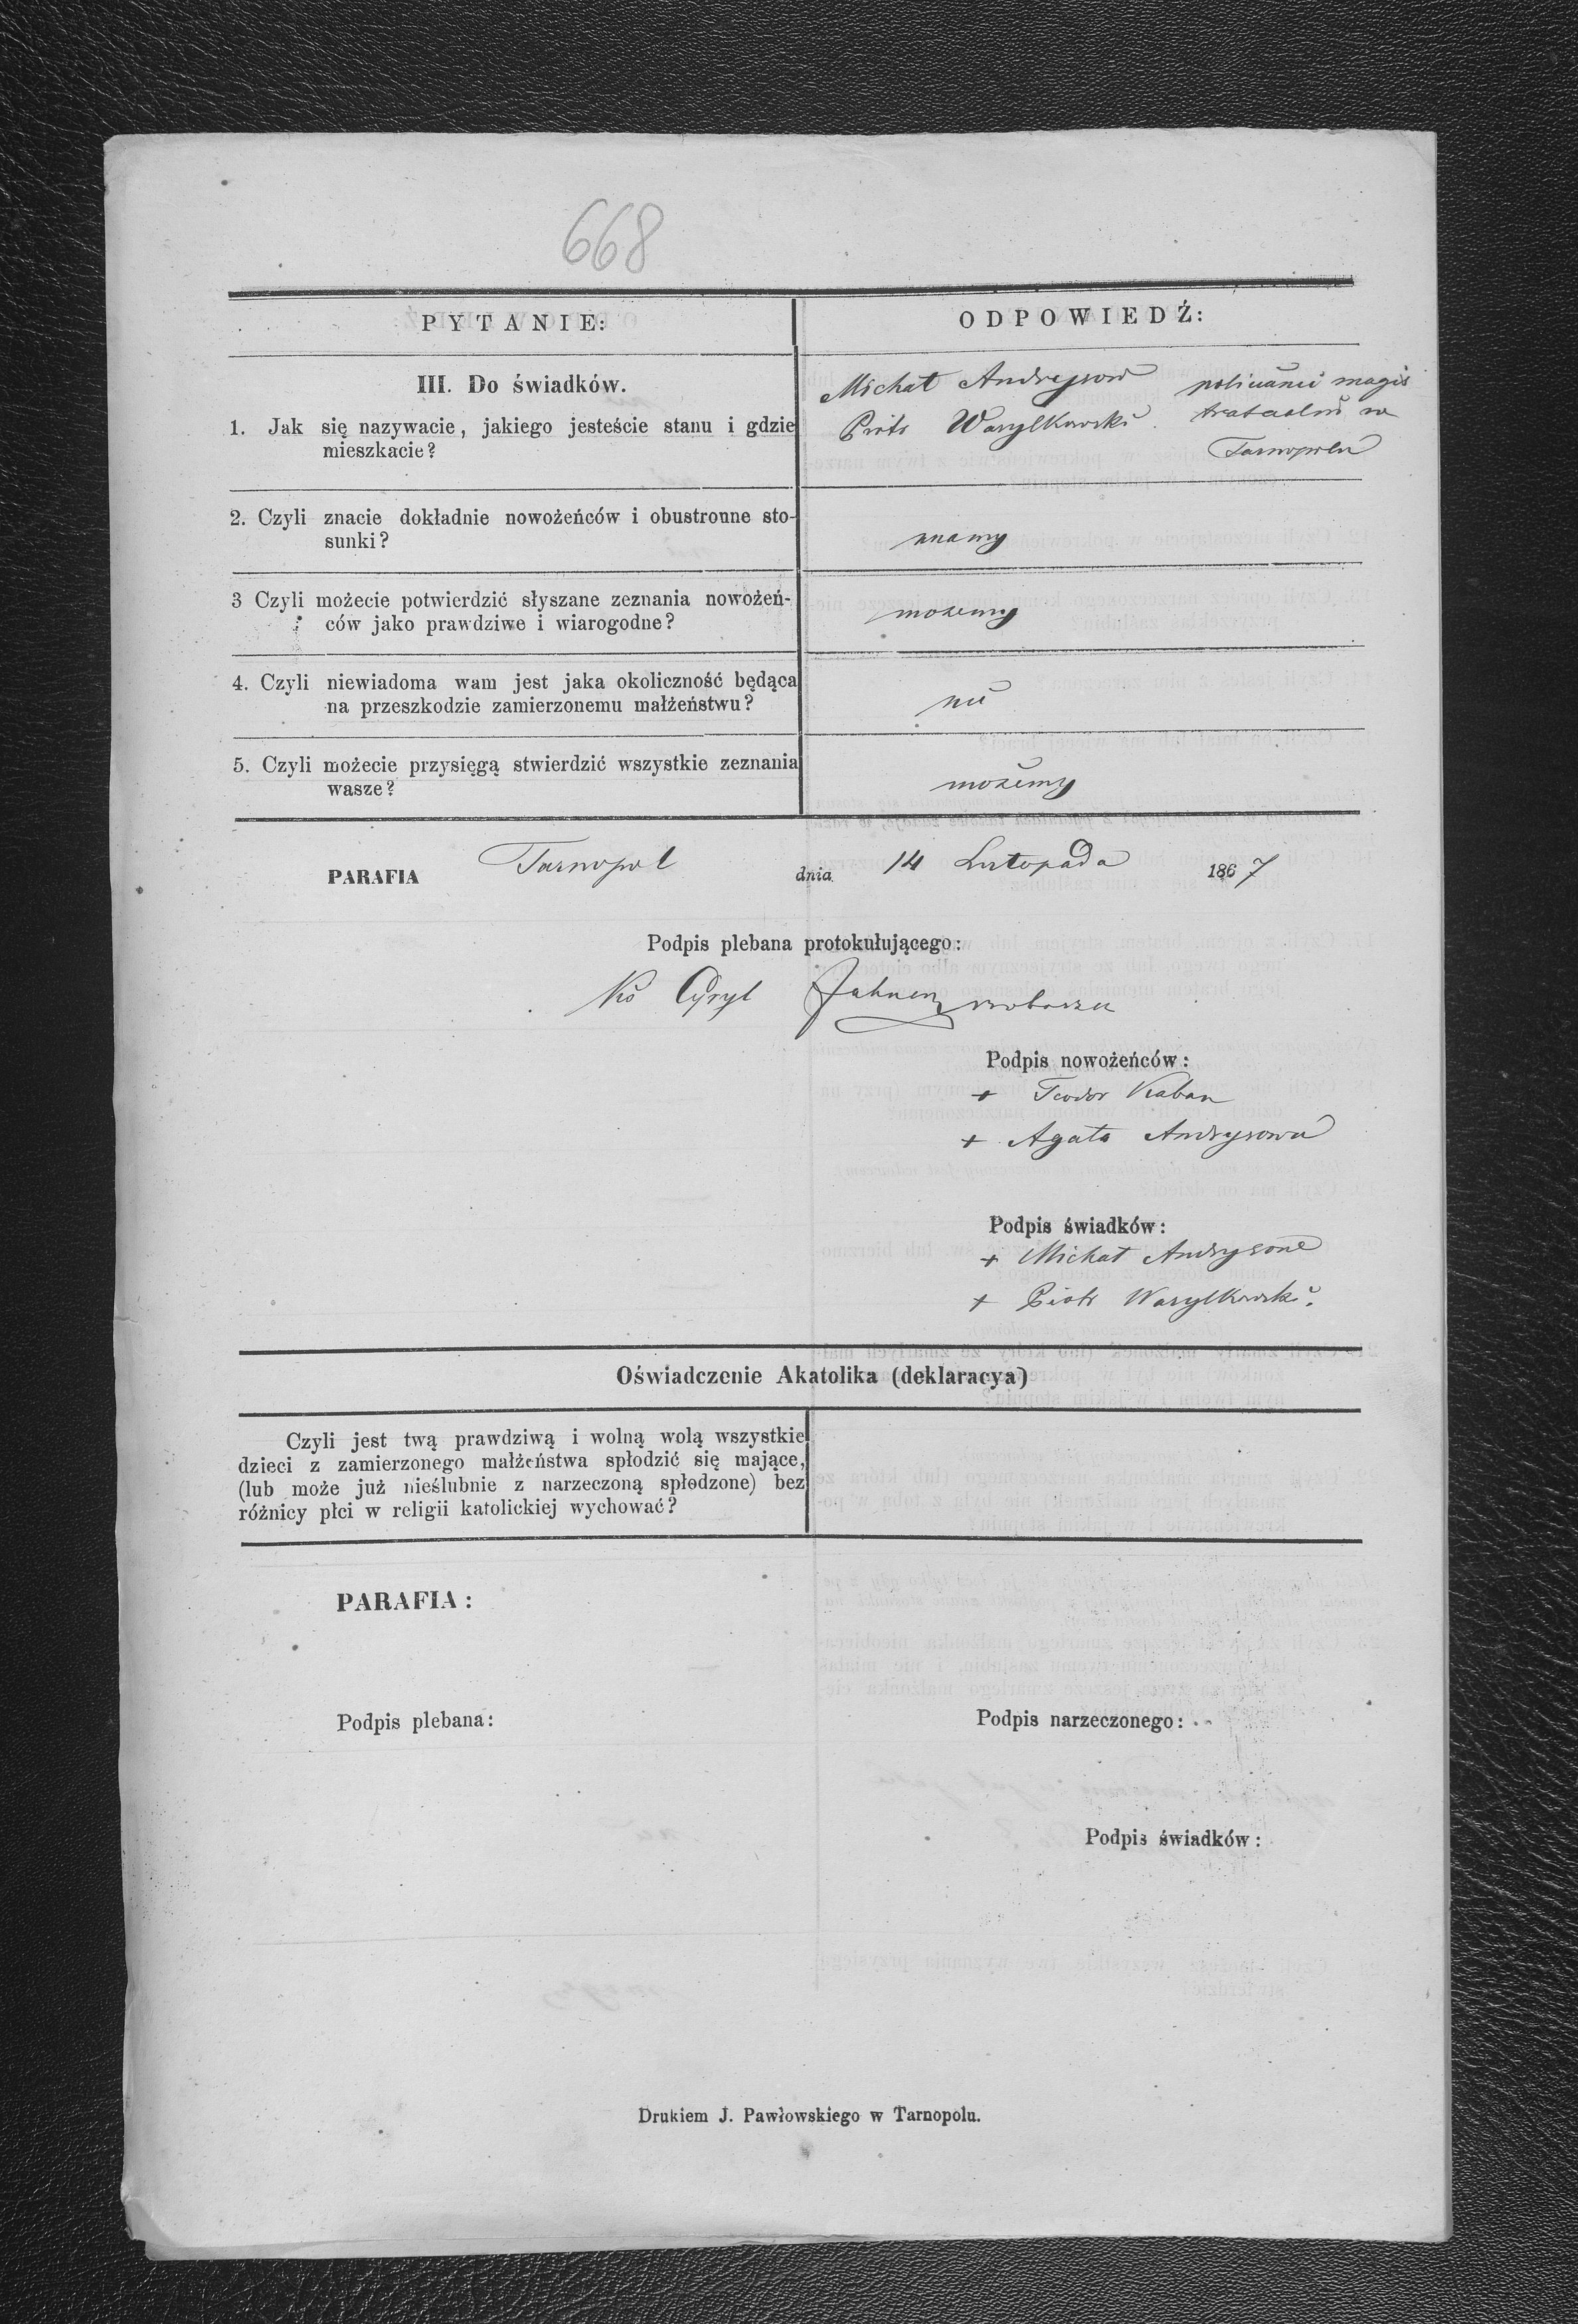 668
PYTANIE:
ODPOWIEDŹ:
III. Do świadków.
1. Jak się nazywacie, jakiego jesteście stanu i gdzie
mieszkacie?
Michał Andreysow policianci magis
Piotr Wasylkowski tratualni w
Tarnopolu
2. Czyli znacie dokładnie nowożeńców i obustronne sto-
sunki?
znamy
3 Czyli możecie potwierdzić słyszane zeznania nowożeń-
ców jako prawdziwe i wiarogodne?
możemy
4. Czyli niewiadoma wam jest jaka okoliczność będąca
na przeszkodzie zamierzonemu małżeństwu?
nie
5. Czyli możecie przysięgą stwierdzić wszystkie zeznania
wasze?
możemy
PARAFIA Tarnopol dnia 14 Listopada 1867
Podpis plebana protokułującego:
Cyryl
Podpis nowożeńców:
+ Teodor Kaban
+ Agata Andrysowa
Podpis świadków:
+ Michał
+ Piotr Wasylkowski.
Oświadczenie Akatolika (deklaracya)
Czyli jest twą prawdziwą i wolną wolą wszystkie
dzieci z zamierzonego małżeństwa spłodzić się mające,
(lub może już nieślubnie z narzeczoną spłodzone) bez
różnicy płci w religii katolickiej wychować?
PARAFIA:
Podpis plebana:
Podpis narzeczonego:
Podpis świadków:
Drukiem J. Pawłowskiego w Tarnopolu.